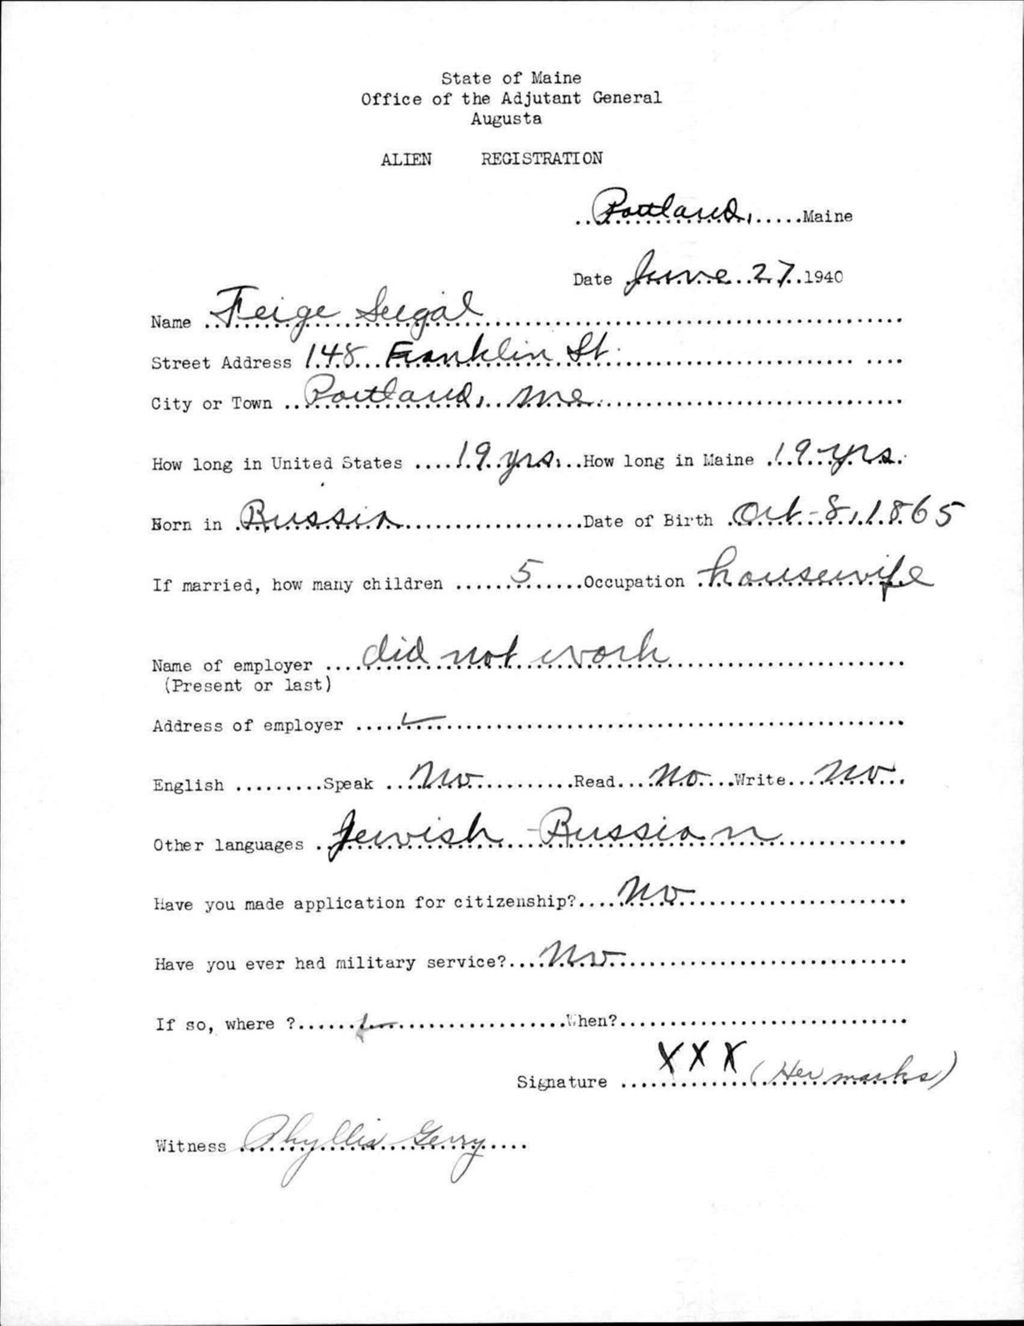 State of Maine
Office of the Adjutant General
Augusta
ALIEN REGISTRATION
Portland, Maine
Date June 27 1940
Name Feige Seegal
Street Address 148 Franklin St.
City or Town Portland, Me.
How long in United States 19 yrs. How long in Maine 19 yrs.
Born in Russia Date of Birth Oct-8, 1865
If married, how many children 5 Occupation housewife
Name of employer did not work
(Present or last)
Address of employer
English Speak No Read No Write No
Other languages Jewish - Russian
Have you made application for citizenship? No
Have you ever had military service? No
If so, where ? When?
Signature XXX (Her marks)
Witness Phyllis Gerry